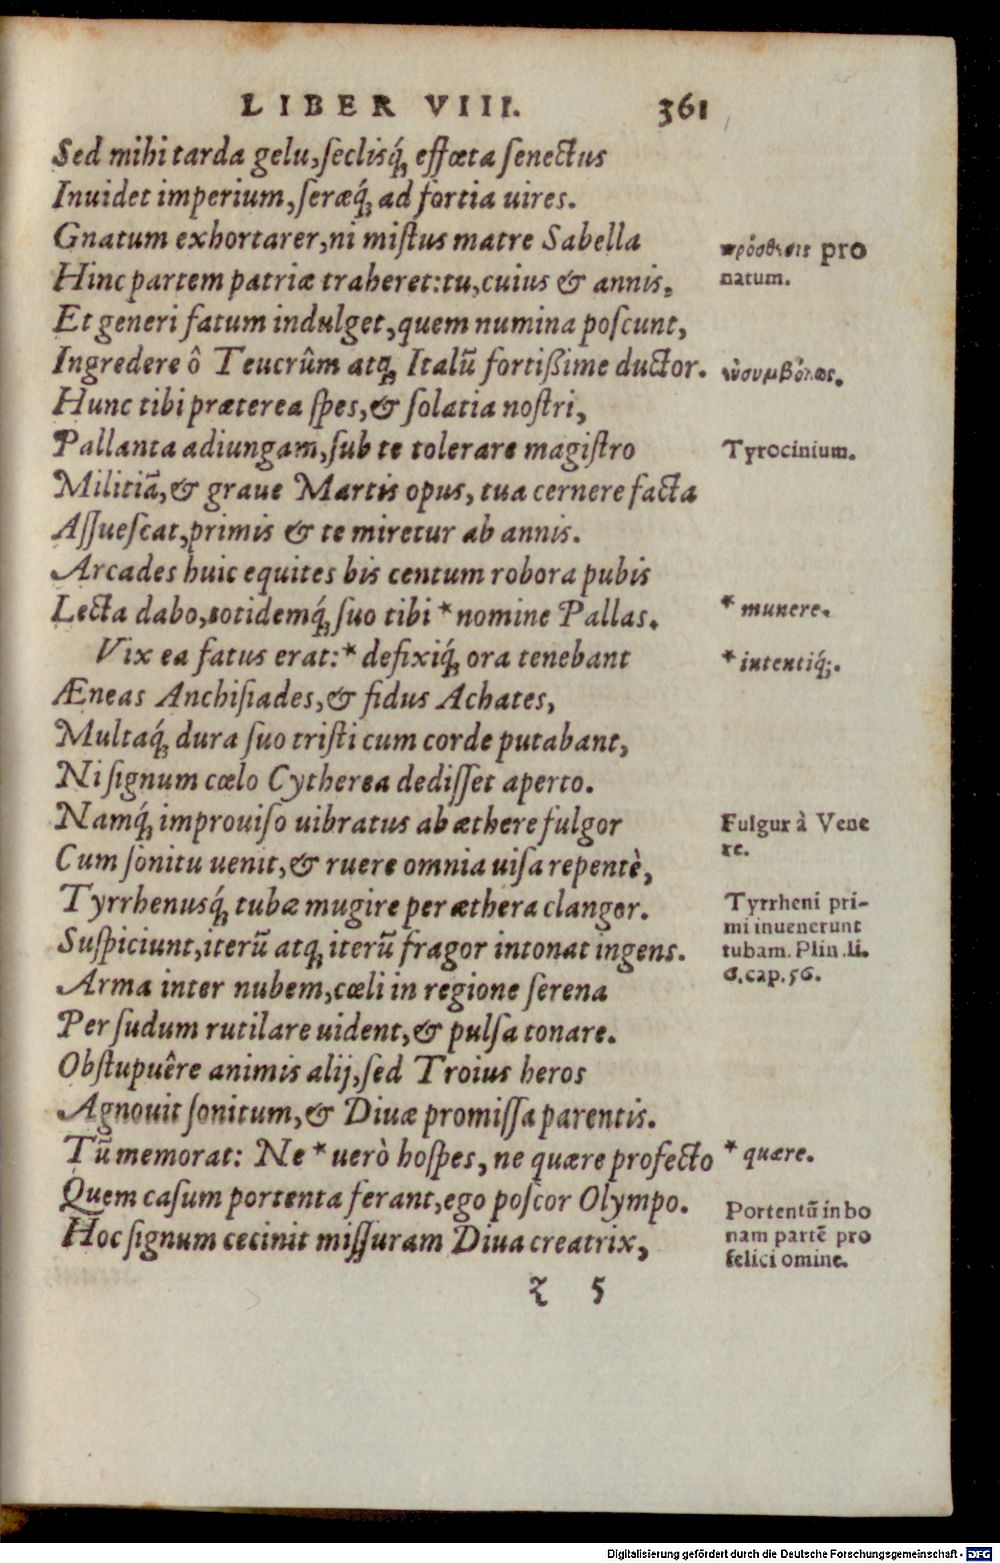 LIBER VIII. 361
Sed mihi tarda gelu, ſeclisq́; effœta ſenectus
Inuidet imperium, ſeræq́; ad fortia uires.
Gnatum exhortarer, ni miſtus matre Sabella
πρόσθεσις pro
natum.
Hinc partem patriæ traheret: tu, cuius & annis.
Et generi fatum indulget, quem numina poſcunt,
Ingredere ô Teucrûm atq; Italũ fortißime ductor.
Hunc tibi præterea ſpes, & ſolatia noſtri,
Pallanta adiungam, ſub te tolerare magiſtro
Tyrocinium.
Militiã, & graue Martis opus, tua cernere facta
Aſſueſcat, primis & te miretur ab annis.
Arcades huic equites bis centum robora pubis
Lecta dabo, totidemq́; ſuo tibi * nomine Pallas.
* munere.
Vix ea fatus erat: * defixiq́; ora tenebant
* intentiq́;.
Æneas Anchiſiades, & fidus Achates,
Multaq́; dura ſuo triſti cum corde putabant,
Ni ſignum cœlo Cytherea dediſſet aperto.
Namq́; improuiſo uibratus ab æthere fulgor
Fulgur à Vene
re.
Cum ſonitu uenit, & ruere omnia uiſa repentè,
Tyrrhenusq́; tubæ mugire per æthera clangor.
Tyrrheni pri-
mi inuenerunt
tubam. Plin. li.
6. cap. 56.
Suſpiciunt, iterũ atq; iterũ fragor intonat ingens.
Arma inter nubem, cœli in regione ſerena
Per ſudum rutilare uident, & pulſa tonare.
Obſtupuêre animis alij, ſed Troius heros
Agnouit ſonitum, & Diuæ promiſſa parentis.
Tũ memorat: Ne * uerò hoſpes, ne quære profecto
* quære.
Quem caſum portenta ferant, ego poſcor Olympo.
Portentũ in bo
nam partẽ pro
felici omine.
Hoc ſignum cecinit miſſuram Diua creatrix,
z 5
Digitalisierung gefördert durch die Deutsche Forschungsgemeinschaft - DFG